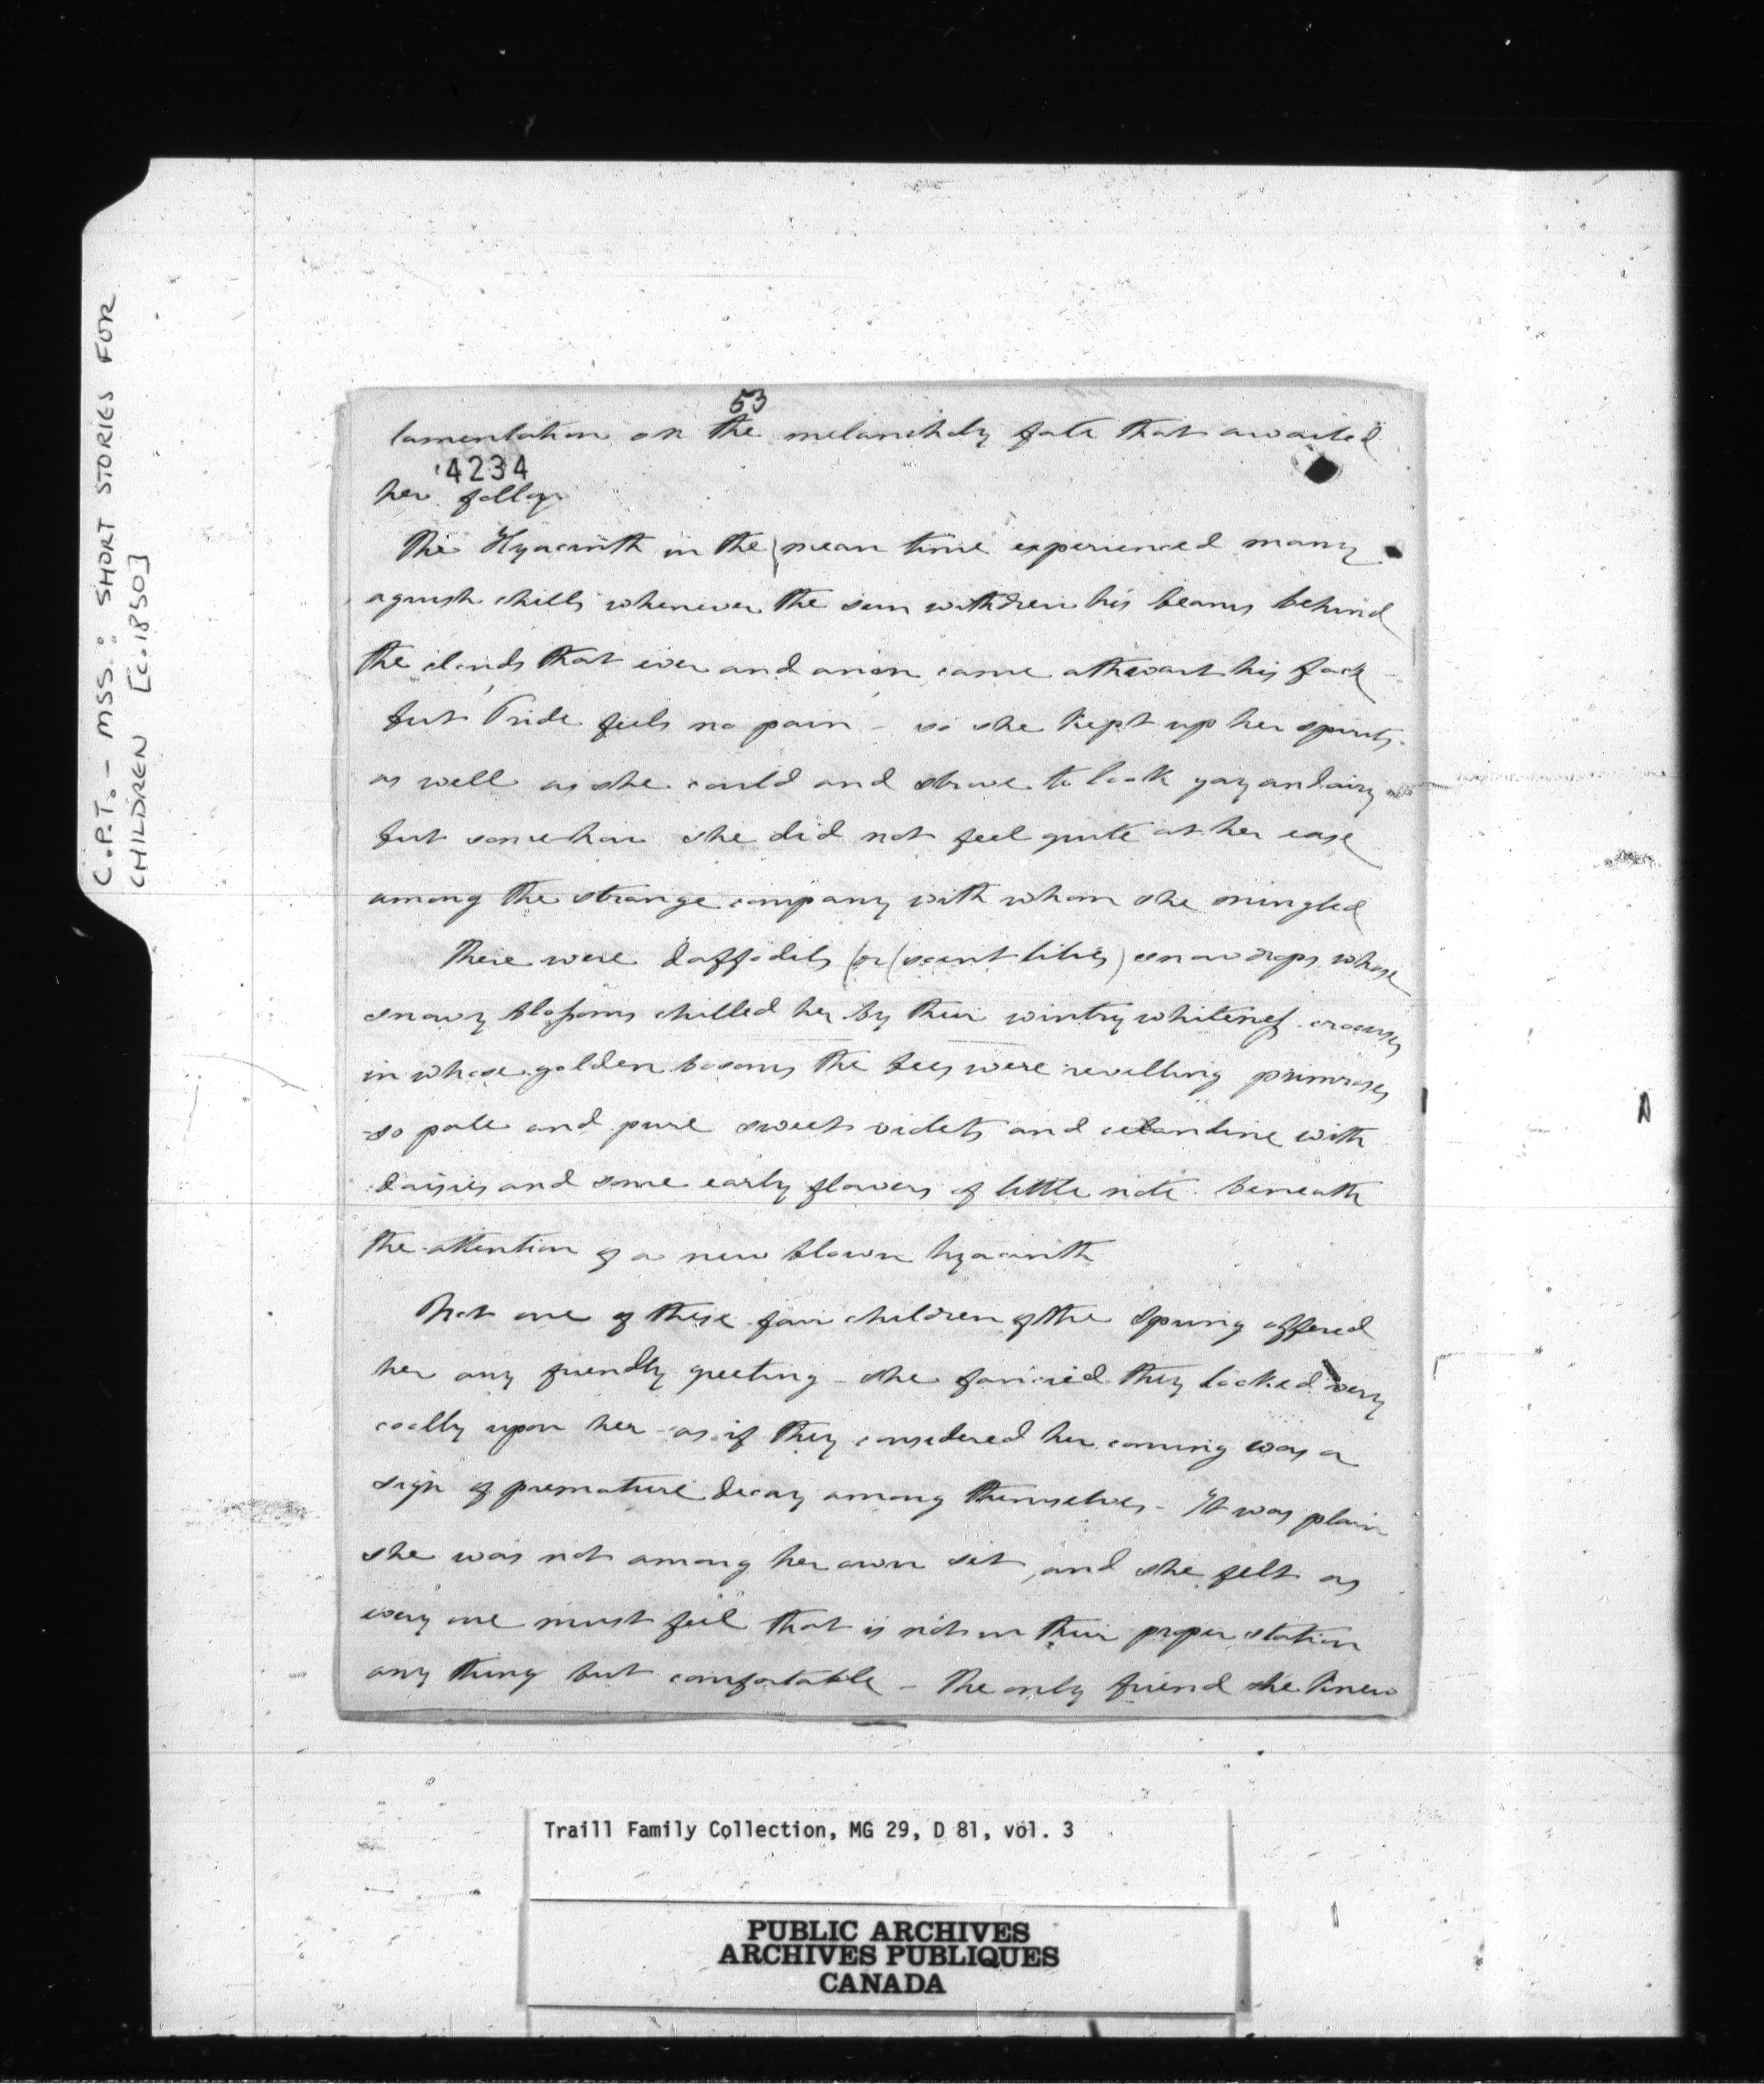 C.P.T. - MSS. : SHORT STORIES FOR
CHILDREN [c.1850]
53
lamentation on the melancholy fate that awaited
4234
her folly
The Hyacinth in the mean time experienced many
aguish chills whenever the sun withdrew his beams behind
the clouds that ever and anon came athwart his face
but Pride feels no pain - so she kept up her spirits
as well as she could and strove to look gay and airy
but somehow she did not feel quite at her ease
among the strange company with whom she mingled
There were daffodils (or Lent lilies) snowdrops whose
snowy blossoms chilled her by their wintry whiteness crocuses
in whose golden bosoms the bees were revelling primroses
so pale and pure sweet violets and celandine with
daisies and some early flowers of little note beneath
the attention of a new blown hyacinth
Not one of these fair children of the Spring offered
her any friendly greeting - she fancied they looked very
coolly upon her - as if they considered her coming was a
sign of premature decay among themselves - It was plain
she was not among her own set, and she felt as
every one must feel that is not in their proper station
any thing but comfortable - The only friend she knew
Traill Family Collection, MG 29, D 81, vol. 3
PUBLIC ARCHIVES
ARCHIVES PUBLIQUES
CANADA